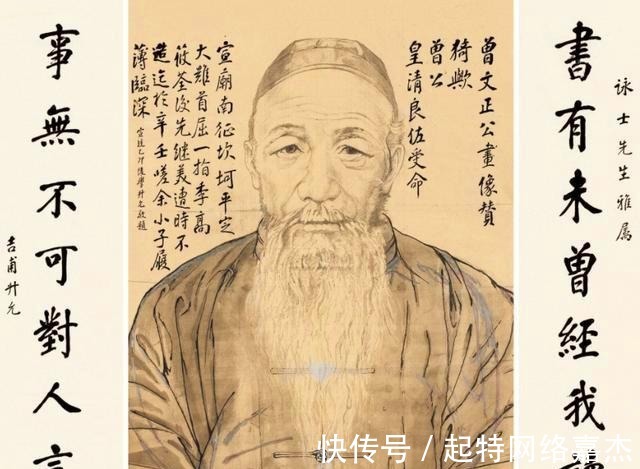 詠士先生雅屬
書有未曾經我讀
曾文正公畫像贊
猗歟
曾公
皇清良佐受命
宣廟南征坎坷平定
大難首屈一指李高
筱荃後先繼美遭時不
造迄於辛壬嗟余小子履
薄臨深
宣統乙卯後學升允敬題
事無不可對人言
吉甫升允
快传号／起特网络嘉杰